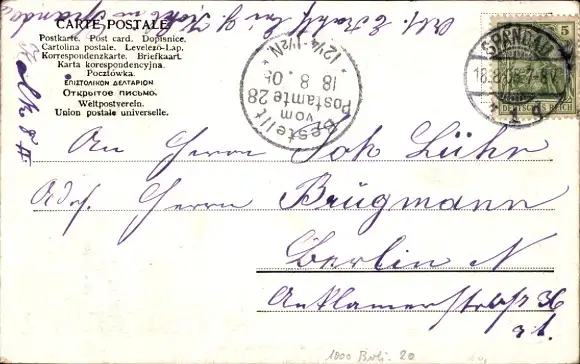 CARTE POSTALE
Postkarte. Post card. Dopisnice.
Cartolina postale. Levelező-Lap.
Korrespondenzkarte. Briefkaart.
Karta korespondencyjna.
Pocztówka.
ΕΠΙΣΤΟΛΙΚΟΝ ΔΕΛΤΑΡΙΟΝ
Открытое письмо.
Weltpostverein.
Union postale universelle.
Bestellt
vom
Postamte 28
18. 8. 05
12¼-1½N
SPANDAU
18.8.05. 7-8V.
1 d
5
DEUTSCHES REICH
An Herrn Joh Lühr
Adr. Herrn Brügmann
Berlin N
Anklamerstraße 36
1000 Berl. 20